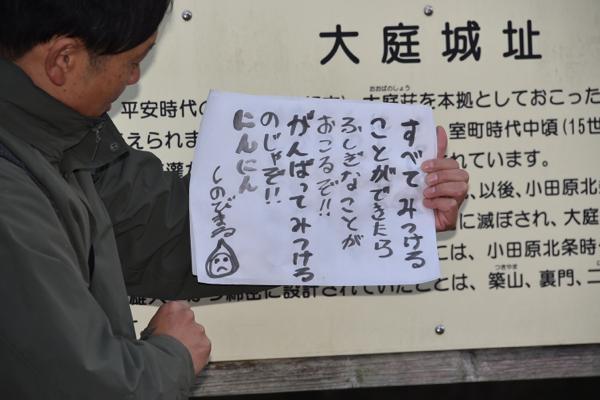 大庭城址
平安時代の
おおばのしょう
大庭荘を本拠としておこった
えられま
室町時代中頃(15世
れています。
、以後、小田原北
に滅ぼされ、大庭
は、小田原北条時
つきやま
に設計されていたことは、築山、裏門、二
すべてみつける
ことができたら
ふしぎなことが
おこるぞ!!
がんばってみつける
のじゃぞ!!
にんにん
しのできる